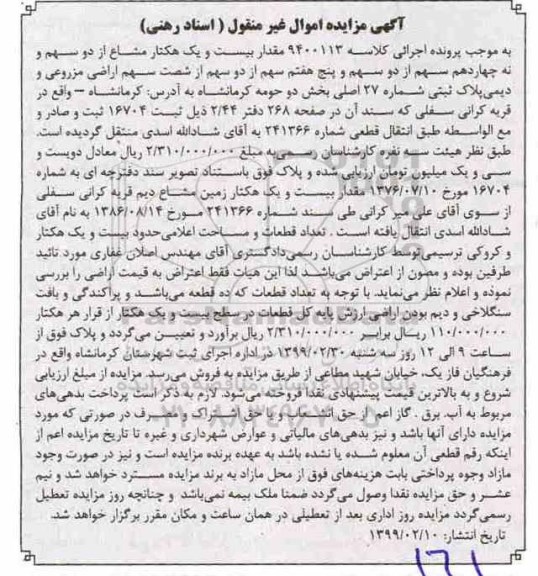 آگهی مزایده اموال غیر منقول ( اسناد رهنی )
به موجب پرونده اجرائی کلاسه ۹۴۰۰۱۱۳ مقدار بیست و یک هکتار مشاع از دو سهم و
نه چهاردهم سهم از دو سهم و پنج هفتم سهم از دو سهم از شصت سهم اراضی مزروعی و
دیمی‌پلاک ثبتی شماره ۲۷ اصلی بخش دو حومه کرمانشاه به آدرس: کرمانشاه – واقع در
قریه کرانی سفلی که سند آن در صفحه ۲۶۸ دفتر ۲/۴۴ ذیل ثبت ۱۶۷۰۴ ثبت و صادر و
مع الواسطه طبق انتقال قطعی شماره ۲۴۱۳۶۶ به آقای شاداله اسدی منتقل گردیده است.
طبق نظر هیئت سه نفره کارشناسان رسمی به مبلغ ۲/۳۱۰/۰۰۰/۰۰۰ ریال معادل دویست و
سی و یک میلیون تومان ارزیابی شده و پلاک فوق باستناد تصویر سند دفترچه ای به شماره
۱۶۷۰۴ مورخ ۱۳۷۶/۰۷/۱۰ مقدار بیست و یک هکتار زمین مشاع دیم قریه کرانی سفلی
از سوی آقای علی میر کرانی طی سند شماره ۲۴۱۳۶۶ مورخ ۱۳۸۶/۰۸/۱۴ به نام آقای
شاداله اسدی انتقال یافته است . تعداد قطعات و مساحت اعلامی‌حدود بیست و یک هکتار
و کروکی ترسیمی‌توسط کارشناسان رسمی‌دادگستری آقای مهندس اصلان غفاری مورد تائید
طرفین بوده و مصون از اعتراض می‌باشد لذا این هیات فقط اعتراض به قیمت اراضی را بررسی
نموده و اعلام نظر می‌نماید. با توجه به تعداد قطعات که ده قطعه می‌باشند و پراکندگی و بافت
سنگلاخی و دیم بودن اراضی ارزش پایه کل قطعات در سطح بیست و یک هکتار از قرار هر هکتار
۱۱۰/۰۰۰/۰۰۰ ریال برابر ۲/۳۱۰/۰۰۰/۰۰۰ ریال برآورد و تعیین می‌گردد و پلاک فوق از
ساعت ۹ الی ۱۲ روز سه شنبه ۱۳۹۹/۰۲/۳۰ در اداره اجرای ثبت شهرستان کرمانشاه واقع در
فرهنگیان فاز یک، خیابان شهید مطاعی از طریق مزایده به فروش می‌رسد. مزایده از مبلغ ارزیابی
شروع و به بالاترین قیمت پیشنهادی نقدا فروخته می‌شود. لازم به ذکر است پرداخت بدهی‌های
مربوط به آب، برق . گاز اعم از حق انشعاب و یا حق اشتراک و مصرف در صورتی که مورد
مزایده دارای آنها باشد و نیز بدهی‌های مالیاتی و عوارض شهرداری و غیره تا تاریخ مزایده اعم از
اینکه رقم قطعی آن معلوم شده یا نشده باشد به عهده برنده مزایده است و نیز در صورت وجود
مازاد وجوه پرداختی بابت هزینه‌های فوق از محل مازاد به برند مزایده مسترد خواهد شد و نیم
عشر و حق مزایده نقدا وصول می‌گردد ضمنا ملک بیمه نمی‌باشد و چنانچه روز مزایده تعطیل
رسمی‌گردد مزایده روز اداری بعد از تعطیلی در همان ساعت و مکان مقرر برگزار خواهد شد.
تاریخ انتشار: ۱۳۹۹/۰۲/۱۰